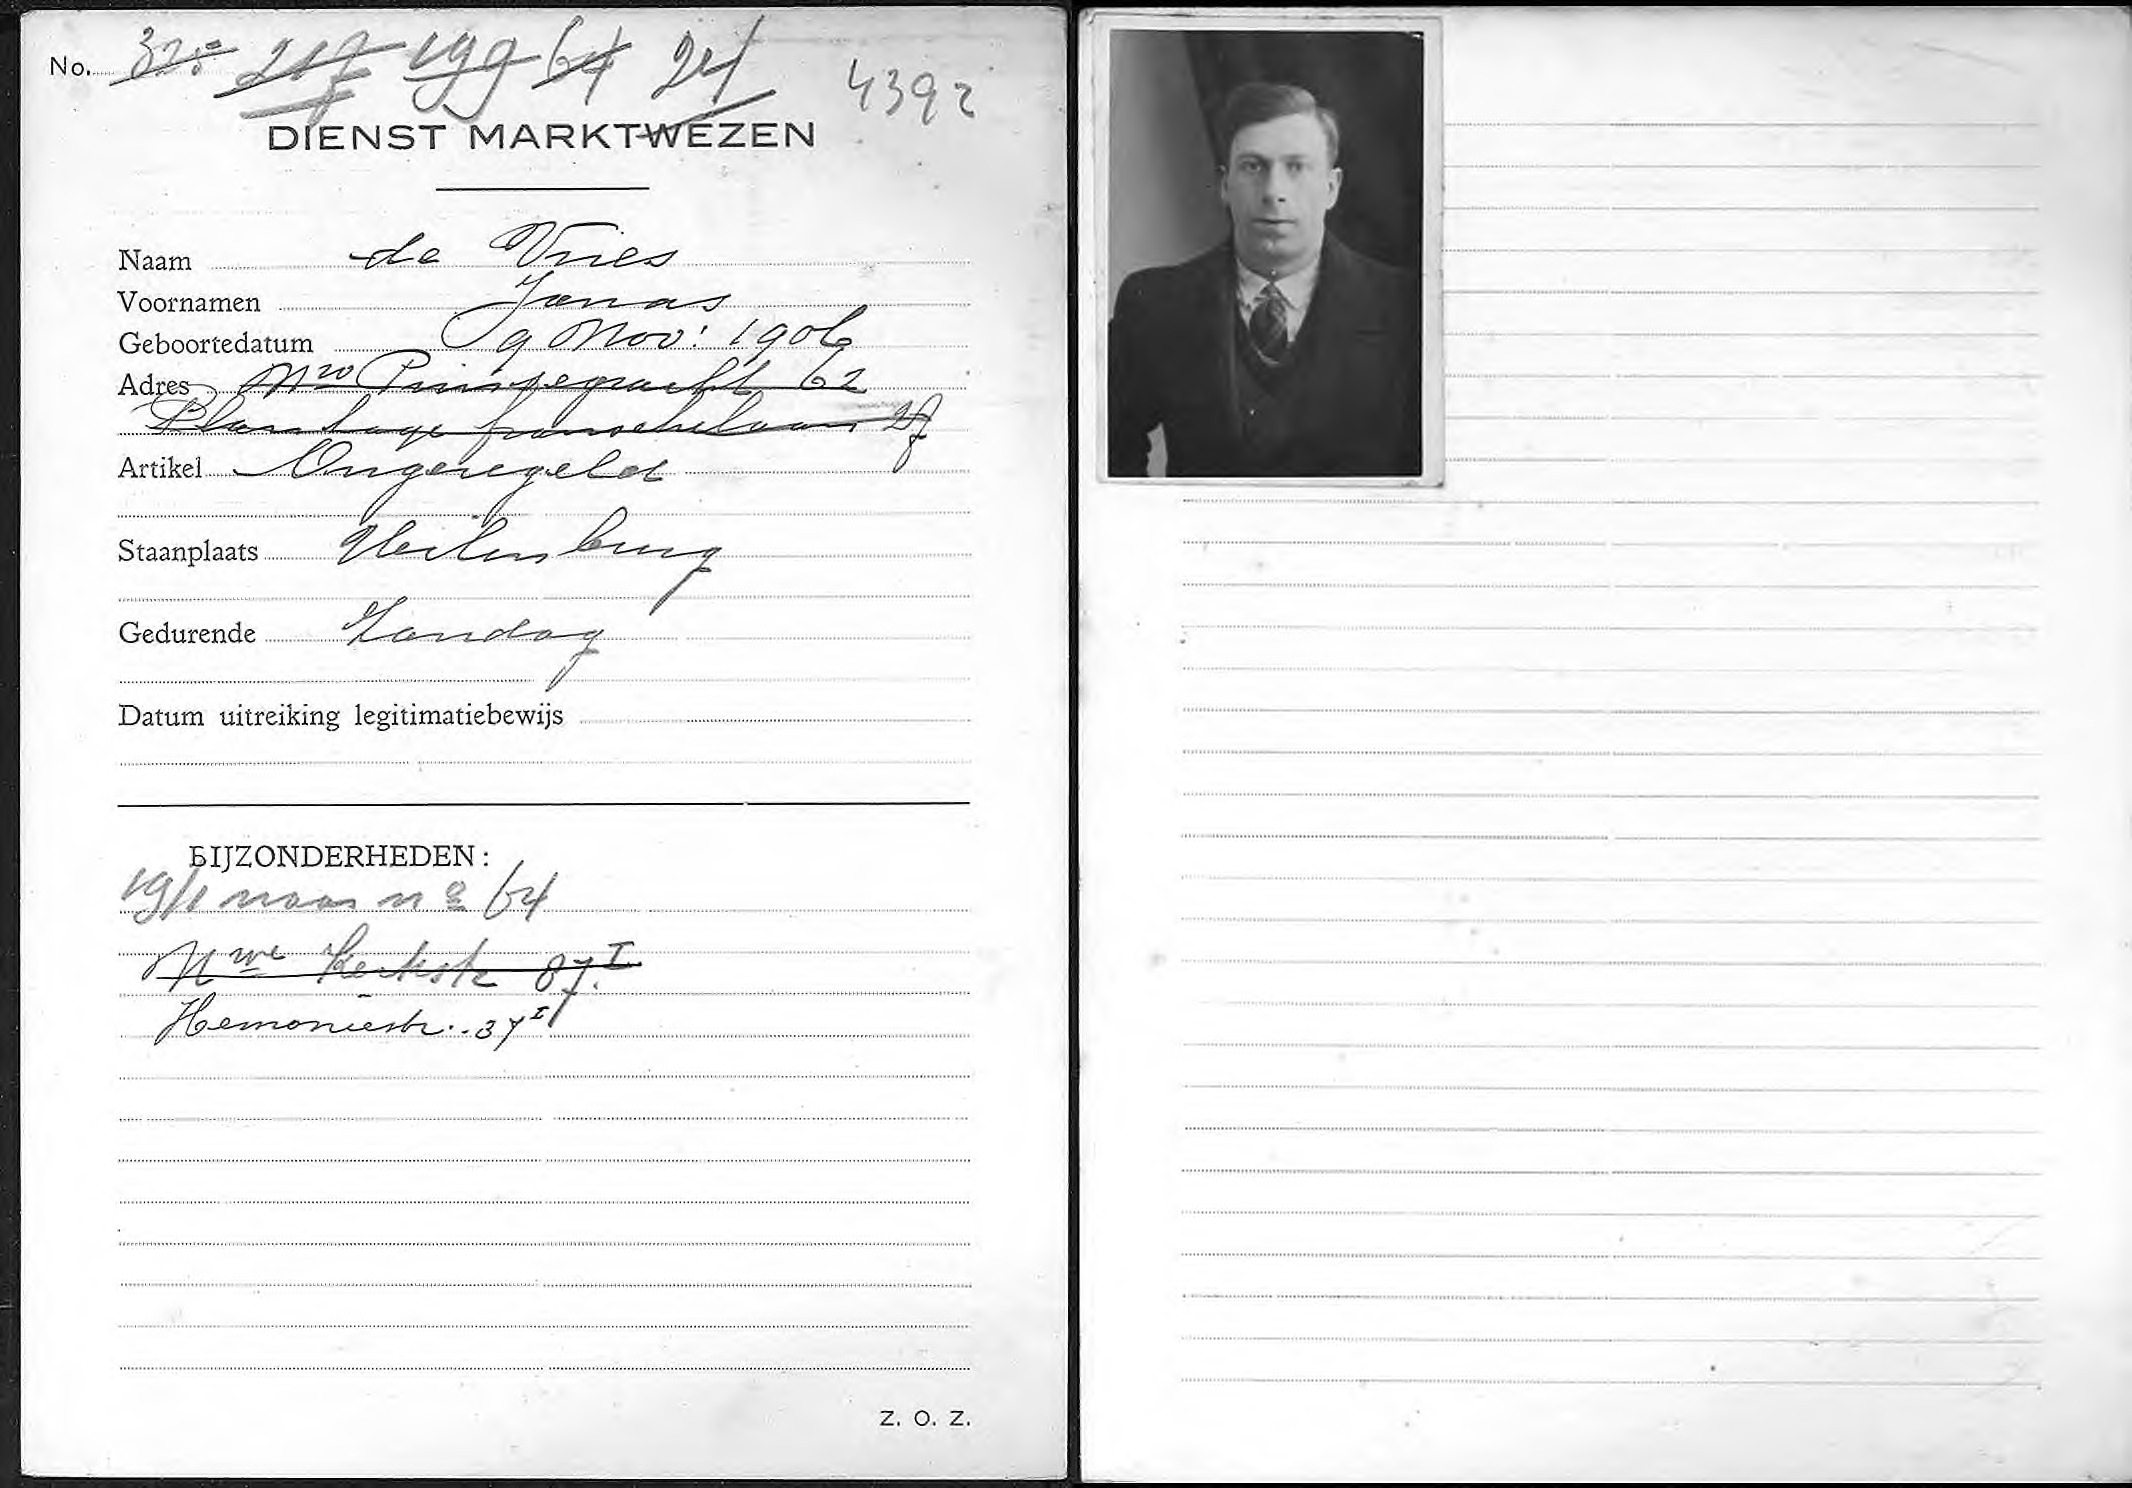 No. 328 217 199 64 24 4392
DIENST MARKTWEZEN
Naam de Vries
Voornamen Jonas
Geboortedatum 9 Nov: 1906
Adres Nw Prinsegracht 62
Plantage franschelaan 27
Artikel Ongeregeld
Staanplaats Uilenburg
Gedurende Zondag
Datum uitreiking legitimatiebewijs
BIJZONDERHEDEN:
19/1 naar no 64
Nwe Kerkstr 87 I
Hemoniestr. 37 I
Z. O. Z.